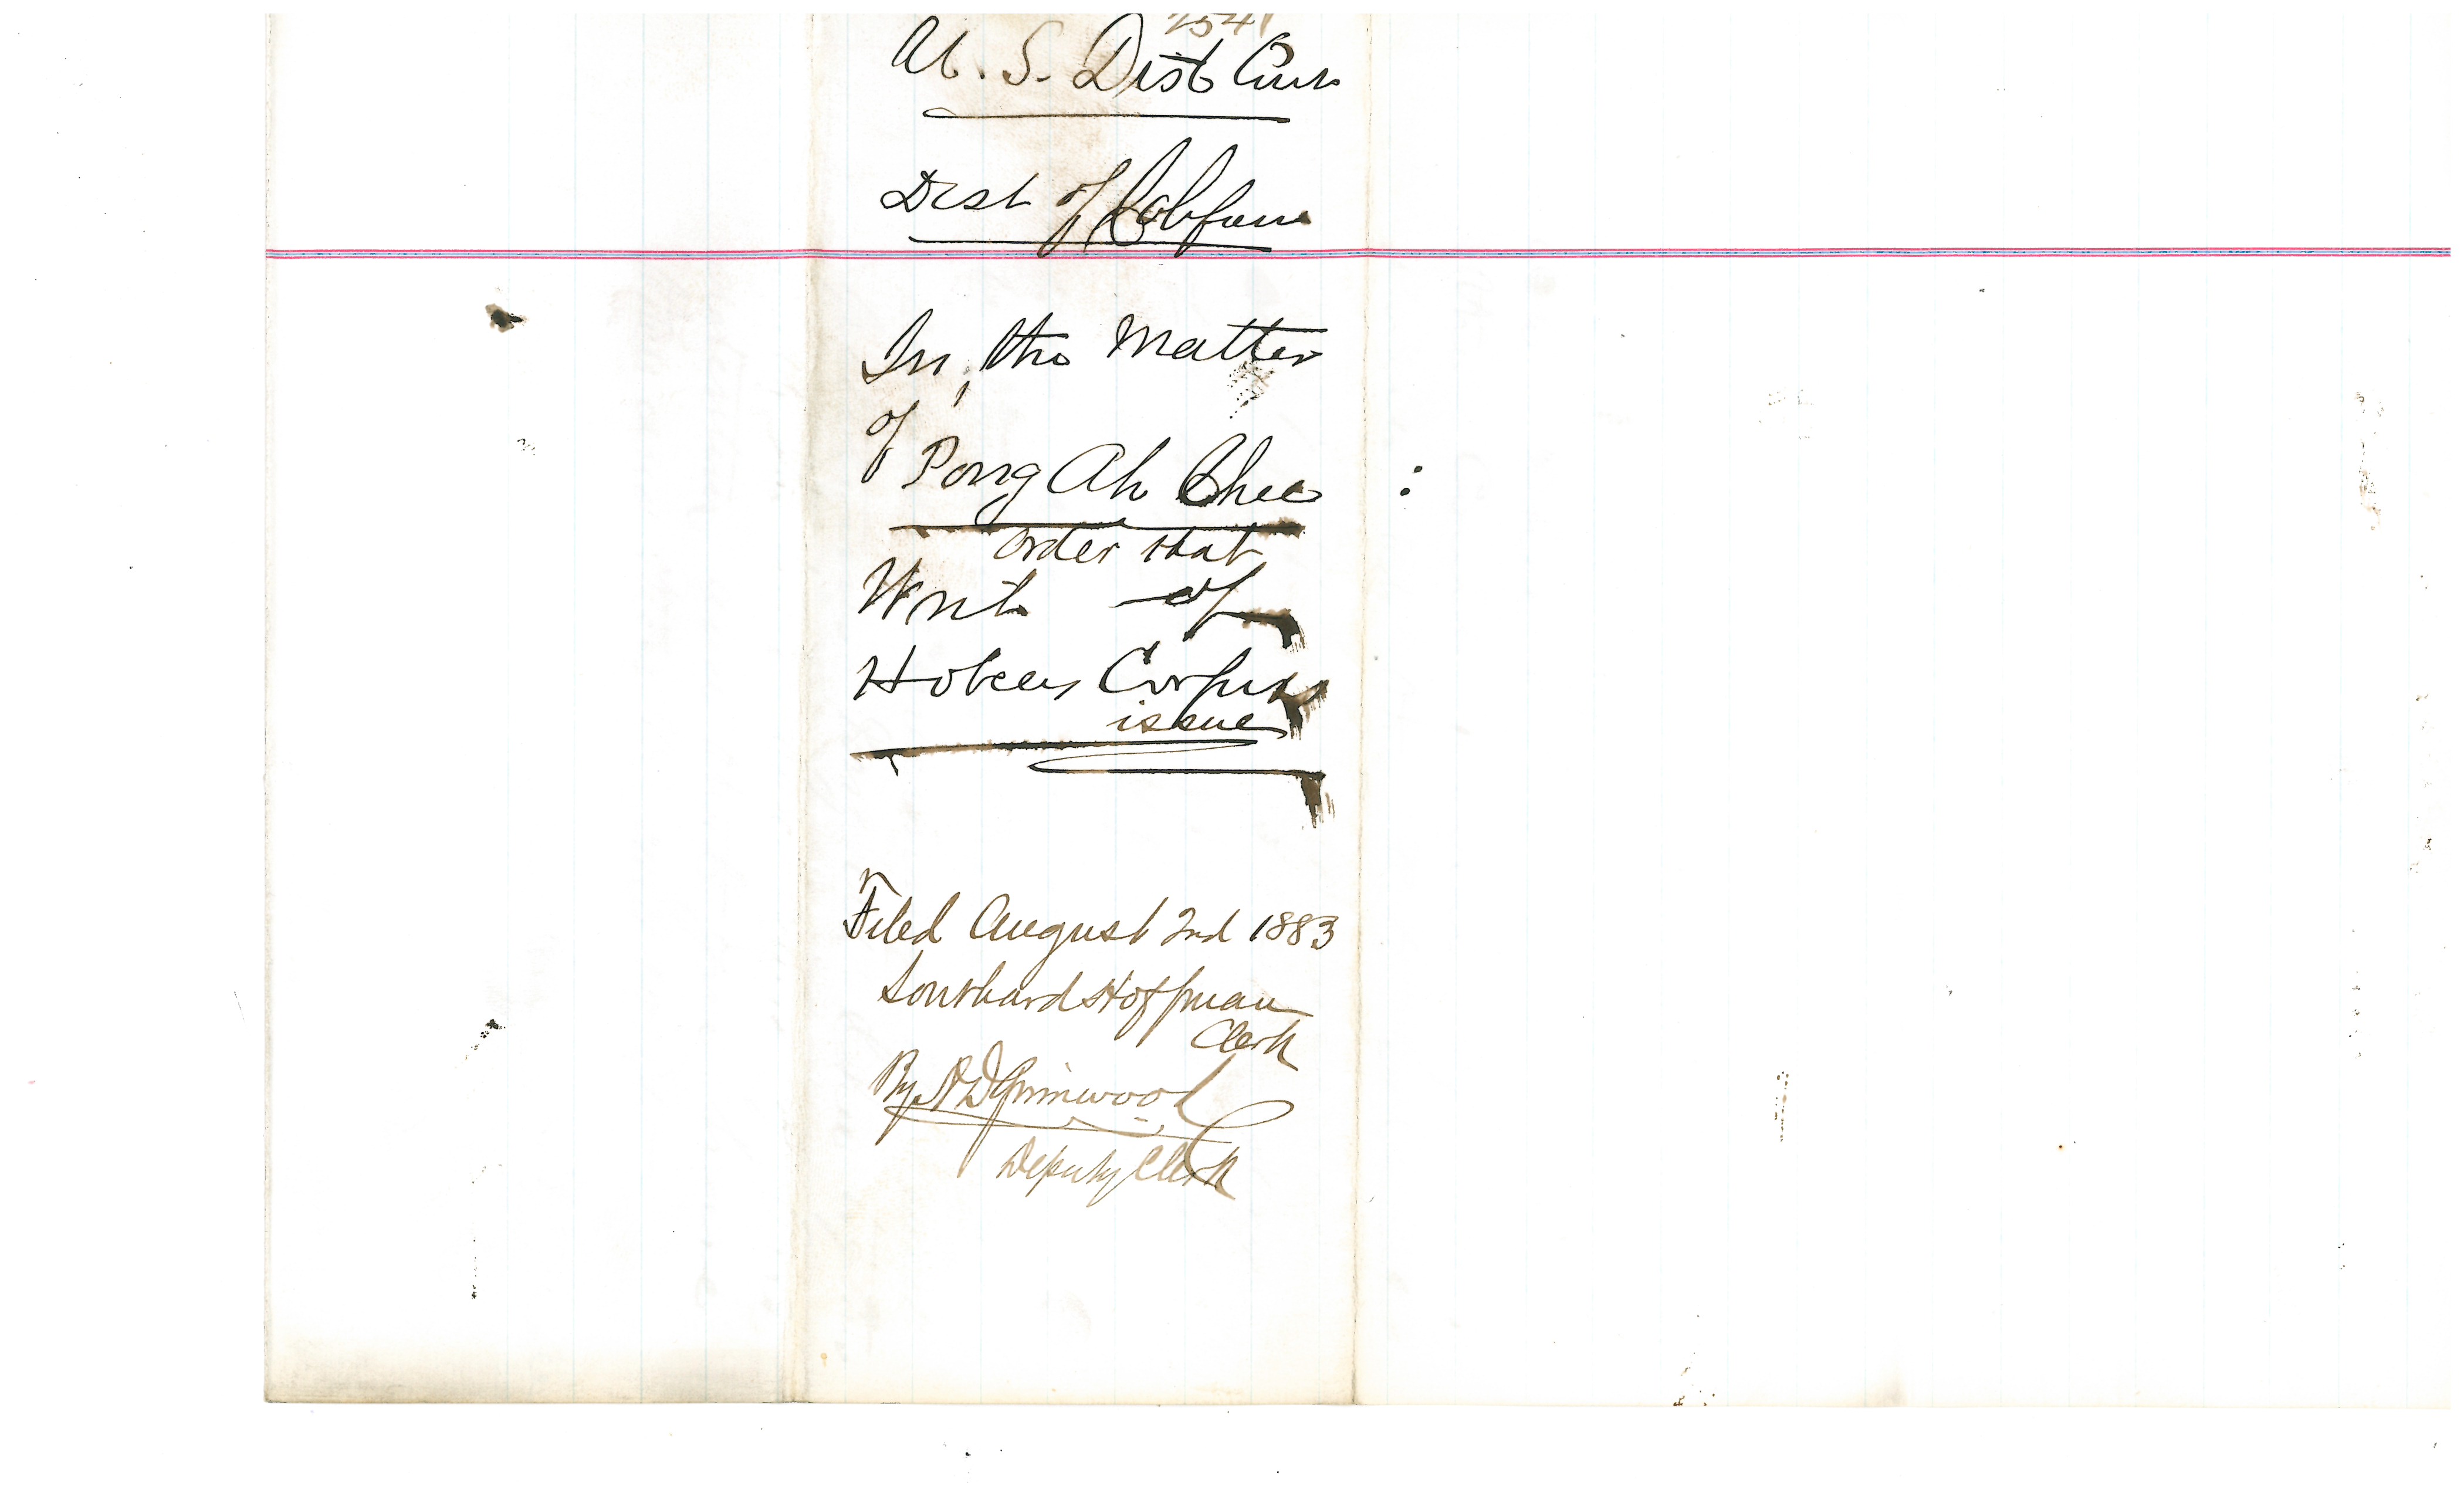 2541
U. S. Dist Court
Dist of California
In the Matter
of
Pong Ah Chee
order that
Writ of
Habeas Corpus
issue
Filed August 2nd 1883
Southard Hoffman
Clerk
By Grimwood
Deputy Clerk